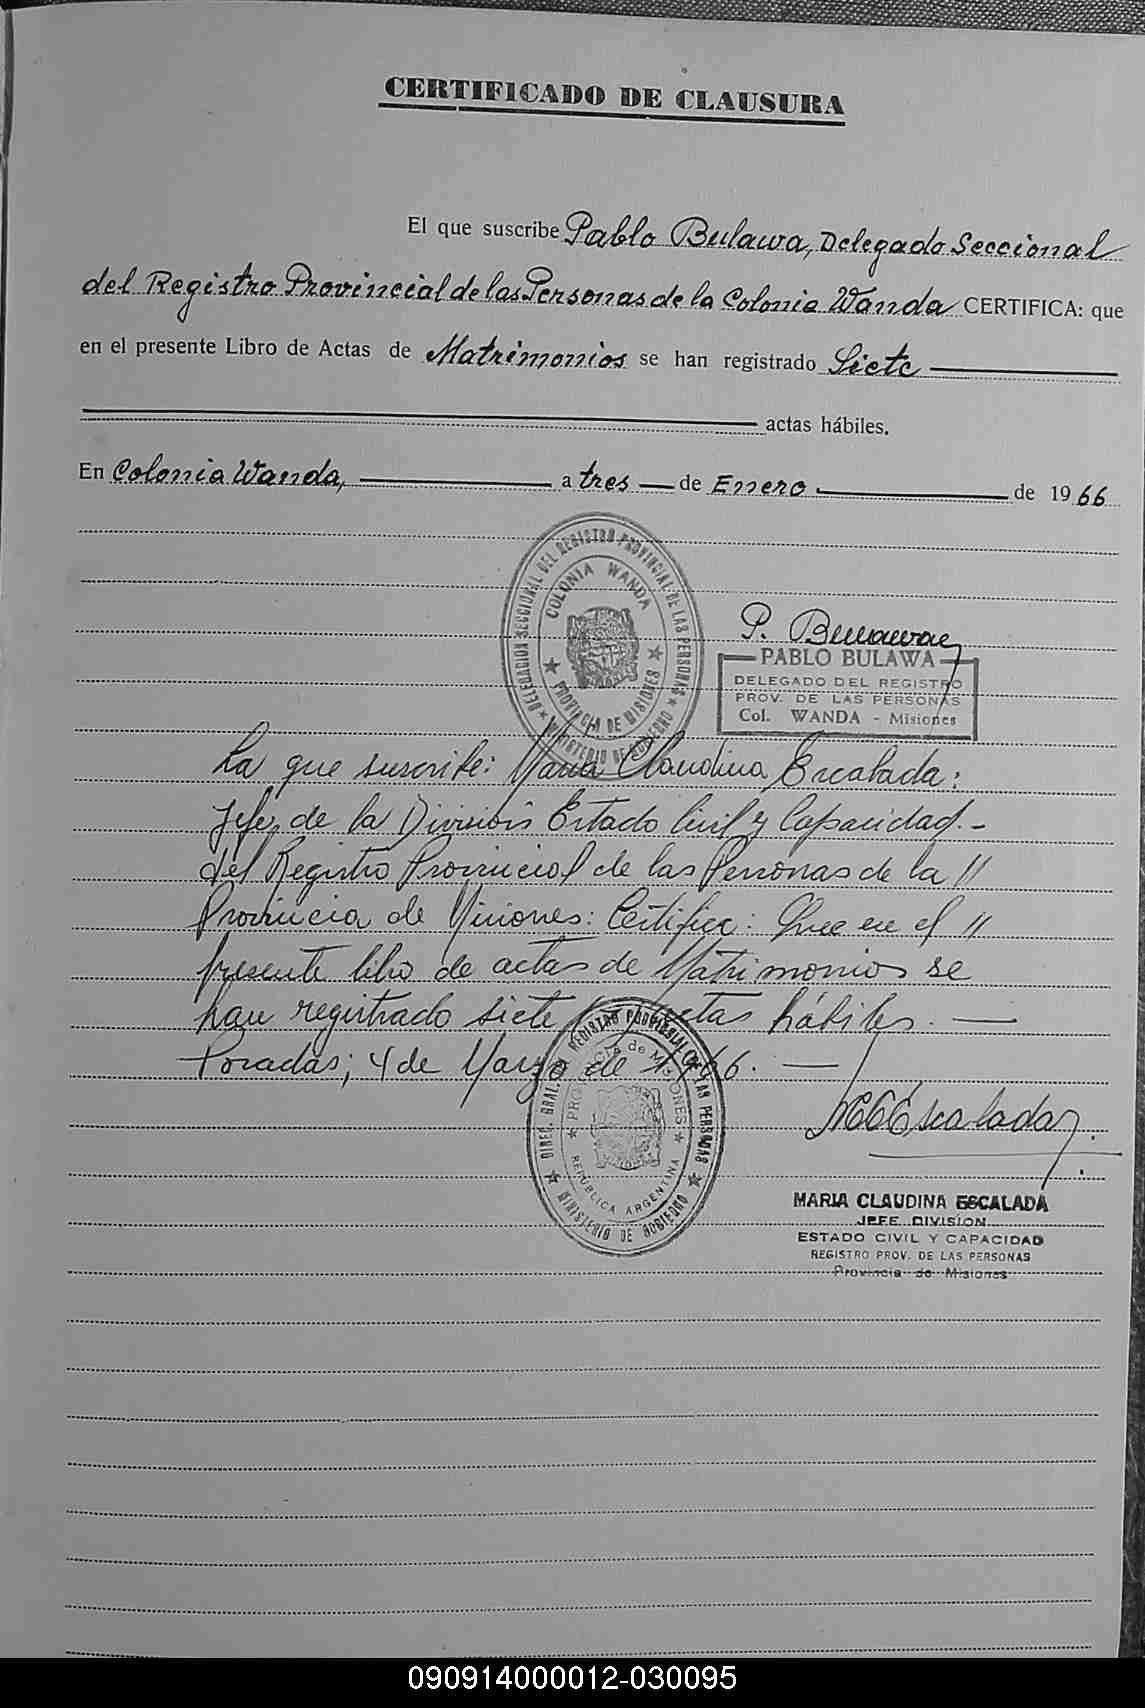 CERTIFICADO DE CLAUSURA
El que suscribe Pablo Bulawa, Delegado Seccional
del Registro Provincial de las Personas de la Colonia Wanda CERTIFICA: que
en el presente Libro de Actas de Matrimonios se han registrado Siete
actas hábiles.
En Colonia Wanda, a tres de Enero de 1966
DELEGACION SECCIONAL DEL REGISTRO PROVINCIAL DE LAS PERSONAS
COLONIA WANDA
PROVINCIA DE MISIONES
MINISTERIO DE GOBIERNO
P. Bulawa
PABLO BULAWA
DELEGADO DEL REGISTRO
PROV. DE LAS PERSONAS
Col. WANDA - Misiones
La que suscribe: María Claudina Escalada:
Jefe, de la División Estado Civil y Capacidad.-
del Registro Provincial de las Personas de la //
Provincia de Misiones: Certifica: Que en el //
presente libro de actas de Matrimonios se
han registrado siete actas hábiles. —
Posadas; 4 de Marzo de 1966. —
DIREC. GRAL. REGISTRO PROVINCIAL DE LAS PERSONAS
PROVINCIA de MISIONES
REPÚBLICA ARGENTINA
MINISTERIO DE GOBIERNO
MCEscalada
MARIA CLAUDINA ESCALADA
JEFE DIVISION
ESTADO CIVIL Y CAPACIDAD
REGISTRO PROV. DE LAS PERSONAS
Provincia de Misiones
090914000012-030095